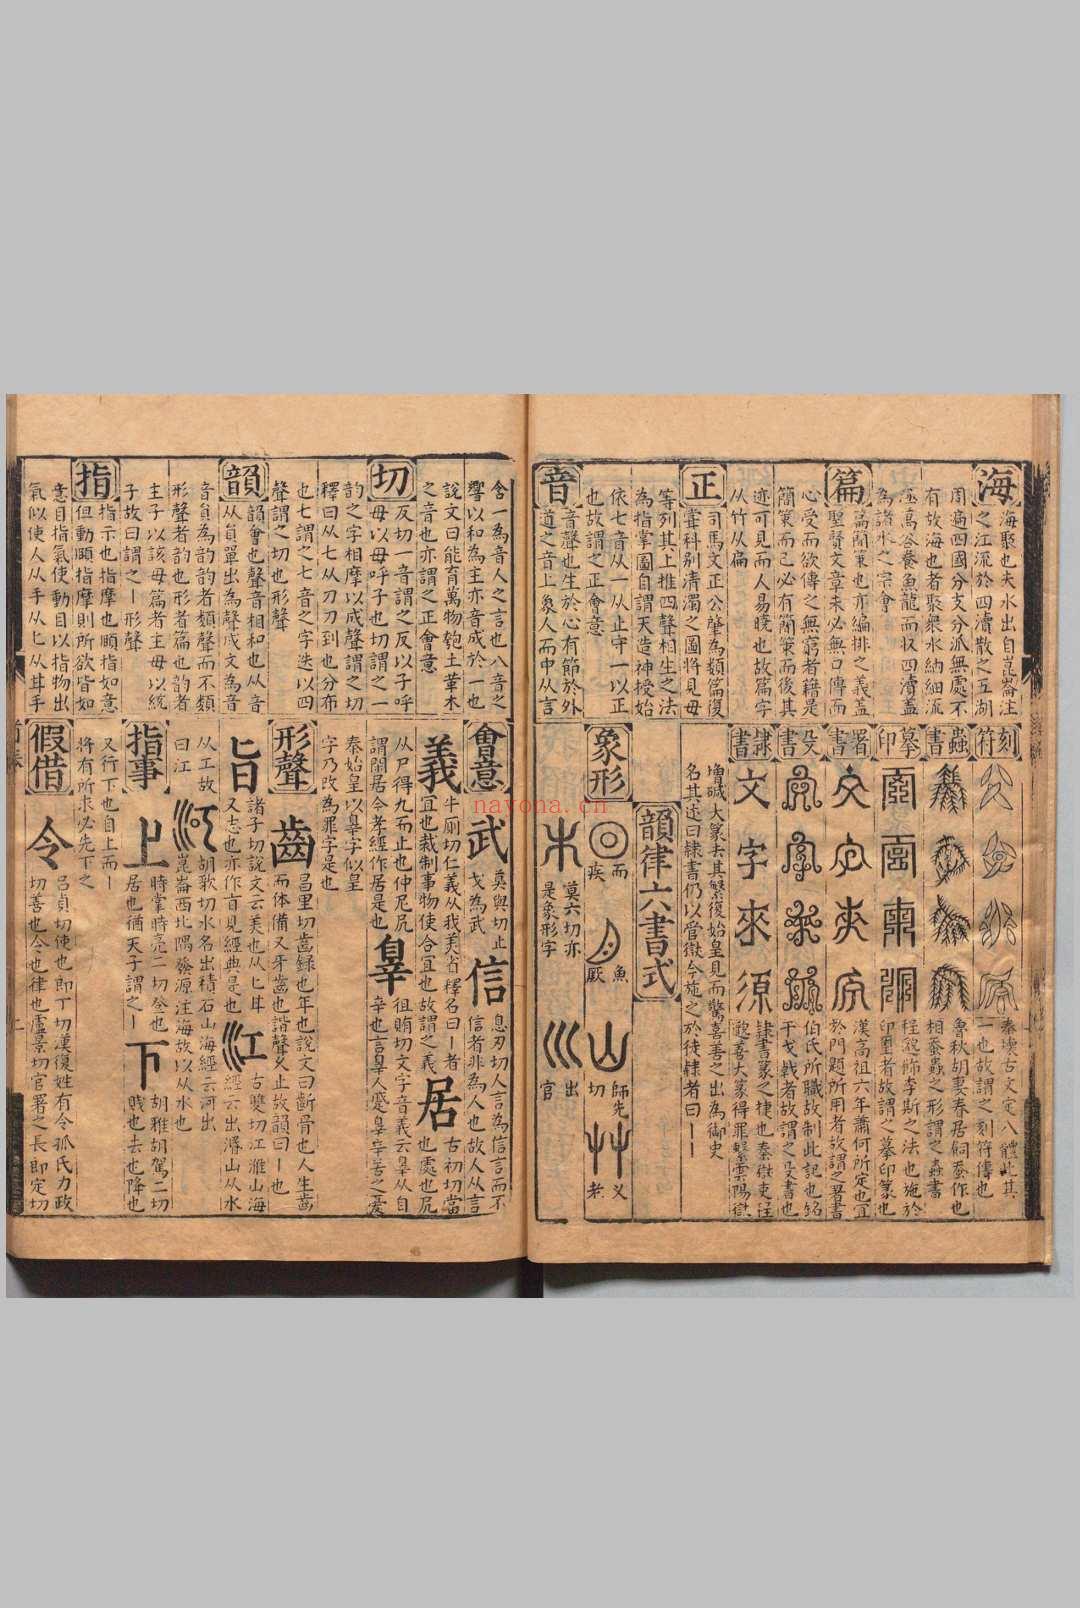 海
海聚也夫水出自崑崙注
之江流於四瀆散之五湖
周遍四國分支分派無處不
有故海也者聚衆水納細流
極萬谷養魚龍而収四瀆蓋
為諸水之宗會
篇
篇簡策也亦編排之義蓋
聖賢文章未必無口傳而
心受而欲傳之無窮者籍是
簡策而已必有簡策而後其
迹可見而人易曉也故篇字
从竹从扁
正
司馬文正公肇為類篇復
掌科别清濁之圖將見母
等列其上推四聲相生之法
為指掌圖自謂天造神授始
依七音从一从止守一以正
也故謂之正會意
音
音聲也生於心有節於外
道之音上象人而中从言
刻符
秦壊古文定八體此其
一也故謂之刻符傳也
蟲書
魯秋胡妻春居飼蚕作也
相蚕蟲之形謂之蟲書
摹印
程邈飾李斯之法也施於
印璽者故謂之摹印篆也
署書
漢高祖六年蕭何所定也宜
於門題所用者故謂之署書
殳書
伯氏所職故制此記也銘
于戈戟者故謂之殳書也
隷書
文字來源
隷書篆之捷也秦獄吏程
邈善大篆得罪繫雲陽獄
增减大篆去其繁復始皇見而驚喜善之出為御史
名其述曰隷書仍以官獄令施之於徒隷者曰ー
韻律六書式
象形
而
疾
魚
厥
師先
切
义
老
木
莫六切亦
是象形字
出
官
含一為音人之言也八音之
響以和為主亦音成於一也
說文曰能育萬物匏土革木
之音也亦謂之正會意
切
反切一音謂之反以子呼
母以母呼子也切謂之一
韵之字相摩以成聲謂之切
釋曰从七从刀刀到也分布
也七謂之七音之字迭以四
聲謂之切也形聲
韻
韻會也聲音相和也从音
从員單出為聲成文為音
音員為韵韵者類聲而不類
形聲者韵也形者篇也韵者
主子以該母篇者主母以統
子故曰謂之ー形聲
指
指示也指摩也頤指如意
但動頤指摩則所欲皆如
意目指氣使動目以指物出
氣似使人从手从匕从甘手
會意
武
莫與切止
戈為武
信
息刃切人言為信言而不
信者非為人也故人从言
義
牛厠切仁義从我美省釋名曰ー者
宜也裁制事物使合宜也故謂之義
居
古初切當
也處也凥
从尸得九而止也仲尼凥
謂閒居今孝經作居是也
辠
徂賄切文字音義云辠从自
辛也言辠人蹙辠辛苦之憂
秦始皇以辠字似皇
字乃改為罪字是也
形聲
齒
昌里切齒録也年也說文曰齗骨也人生齒
而体備又牙齒也諧聲又止故韻曰ー也
旨
諸子切說文云美也从匕甘
又志也亦作㫖見經典是也
江
古雙切江淮山海
經云出㟭山从水
从工故
曰江
河
胡歌切水名出積石山海經云河出
崑崙西北隅發源注海故以从水也
指事
上
時掌時亮二切登也
居也猶天子謂之ー
下
胡雅胡駕二切
賤也去也降也
又行下也自上而ー
將有所求必先下之
假借
令
吕貞切使也即丁切漢復姓有令狐氏力政
切善也令也律也盧景切官署之長即定切
navona.cn